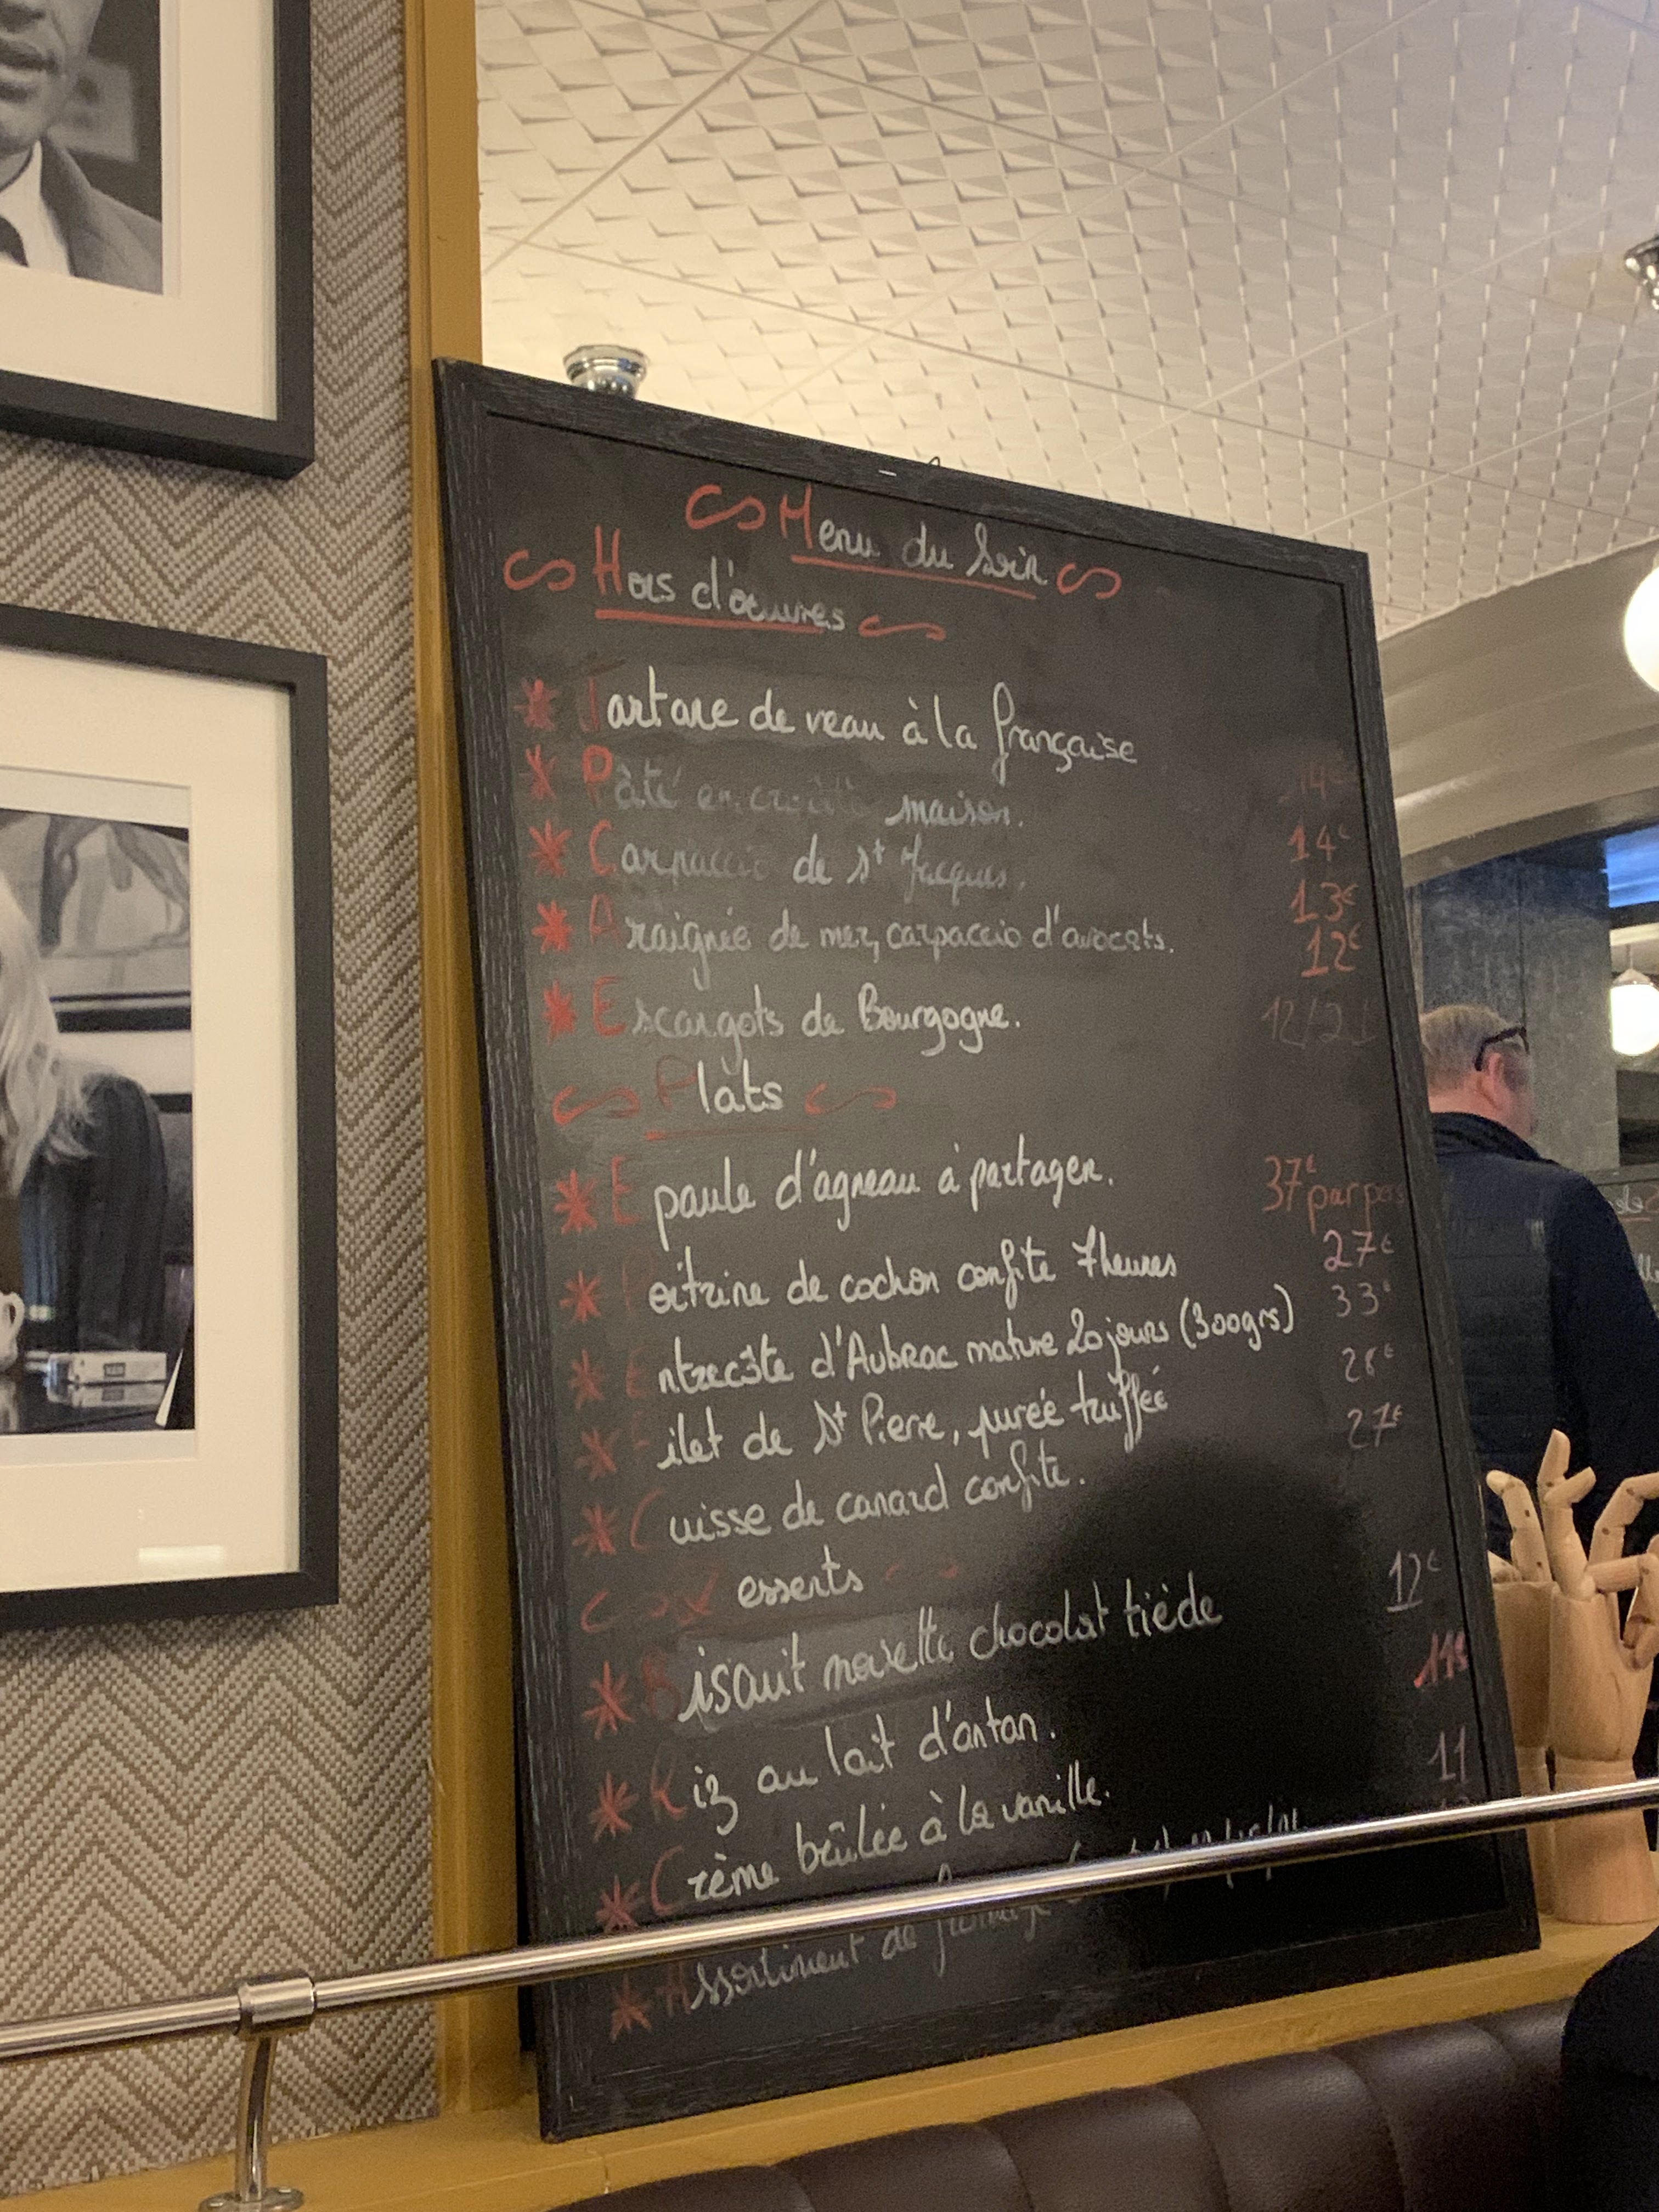 Menu du Soir
Hors d'oeuvres
Tartare de veau à la française 14€
Pâté en croûte maison. 14€
Carpaccio de St Jacques. 13€
Araignée de mer, carpaccio d'avocats. 12€
Escargots de Bourgogne. 12/21
Plats
Epaule d'agneau à partager. 37€ par pers
Poitrine de cochon confite 7 heures 27€
Entrecôte d'Aubrac mature 20 jours (300grs) 33€
Filet de St Pierre, purée truffée 28€
Cuisse de canard confite. 27€
Desserts
Biscuit noisette, chocolat tiède 12€
Riz au lait d'antan. 11€
Crème brûlée à la vanille. 11
Assortiment de fromage